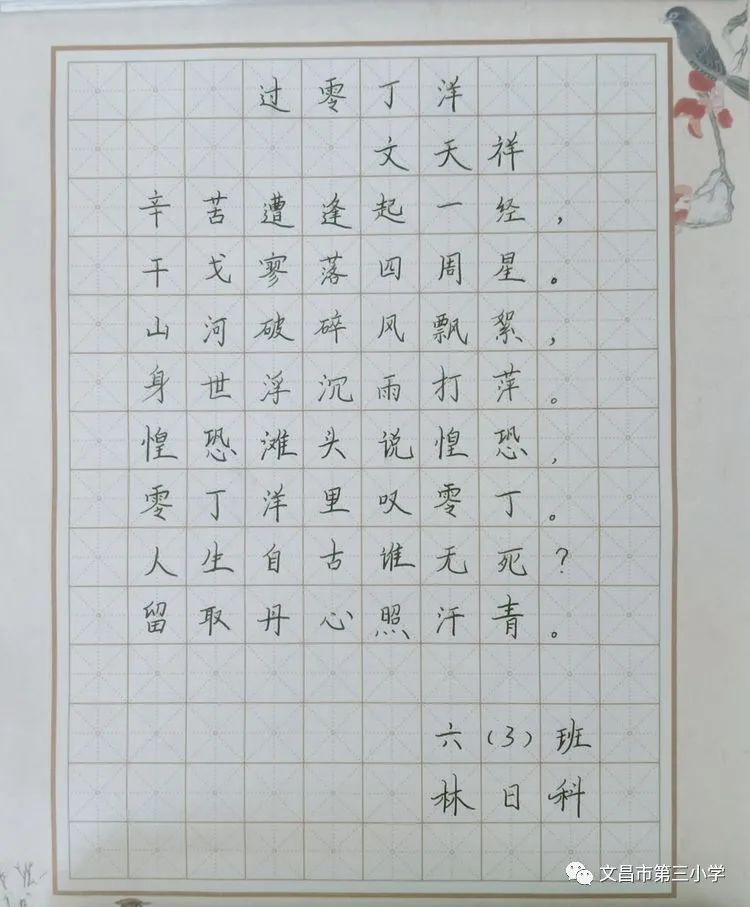 过零丁洋
文天祥
辛苦遭逢起一经，
干戈寥落四周星。
山河破碎风飘絮，
身世浮沉雨打萍。
惶恐滩头说惶恐，
零丁洋里叹零丁。
人生自古谁无死？
留取丹心照汗青。
六(3)班
林日科
文昌市第三小学